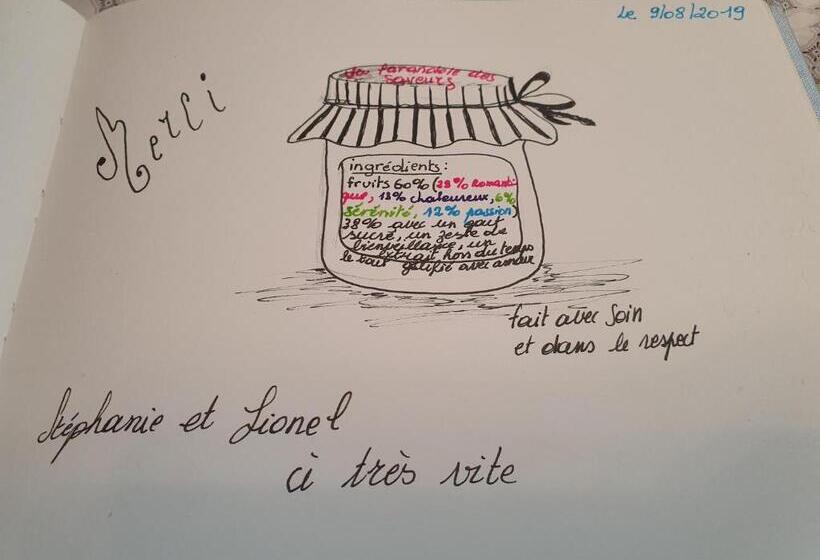 Le 9/08/2019
Merci
La farandole des
Saveurs
ingrédients:
fruits 60% (29% Romanti-
que, 13% chaleureux, 6%
Sérénité, 12% passion)
38% avec un goût
sucré, un zeste de
bienveillance, un
extrait hors du temps
le tout gélifié avec amour
fait avec Soin
et dans le respect
Stéphanie et Lionel
à très vite